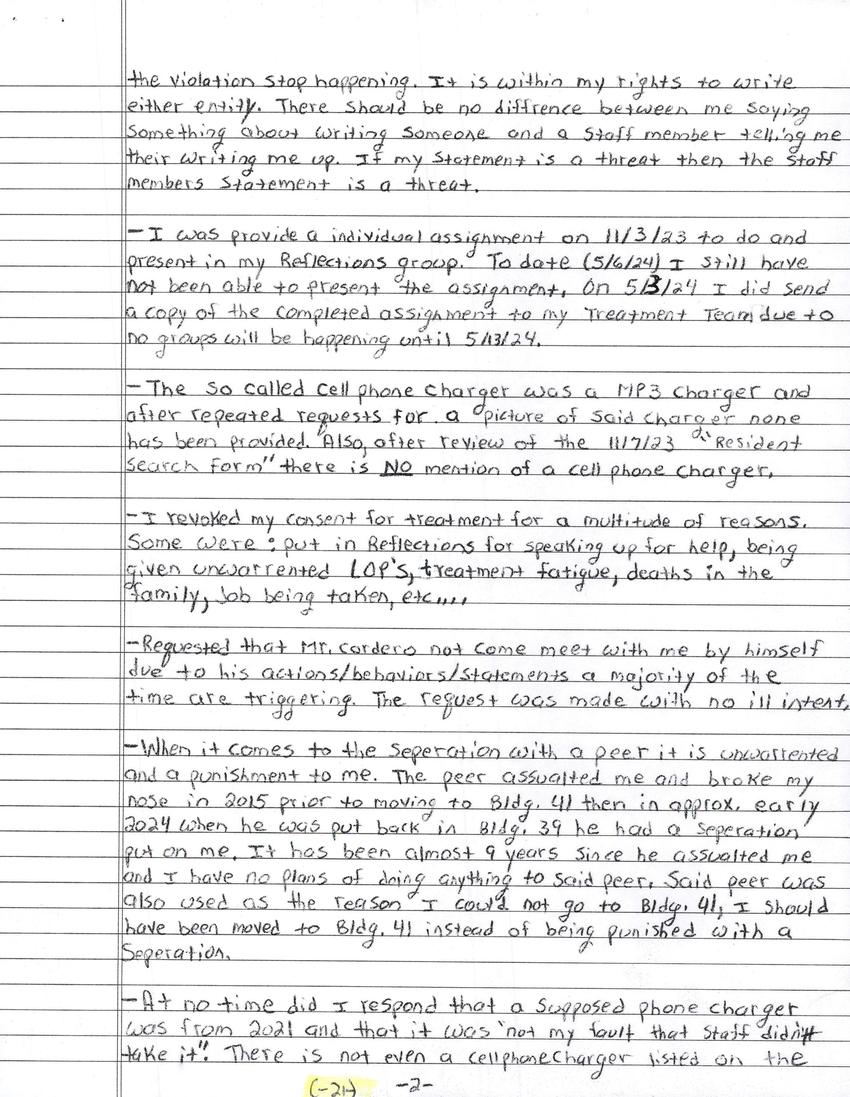 the violation stop happening. It is within my rights to write
either entity. There should be no diffrence between me saying
something about writing someone and a staff member telling me
their writing me up. If my statement is a threat then the staff
members statement is a threat.
- I was provide a individual assignment on 11/3/23 to do and
present in my Reflections group. To date (5/6/24) I still have
not been able to present the assignment. On 5/3/24 I did send
a copy of the completed assignment to my Treatment Team due to
no groups will be happening until 5/13/24.
- The so called cell phone charger was a MP3 charger and
after repeated requests for a picture of said charger none
has been provided. Also, after review of the 11/7/23 "Resident
Search form" there is NO mention of a cell phone charger.
- I revoked my consent for treatment for a multitude of reasons.
Some were: put in Reflections for speaking up for help, being
given unwarrented LOP's, treatment fatigue, deaths in the
family, Job being taken, etc....
- Requested that Mr. Cordero not come meet with me by himself
due to his actions/behaviors/statements a majority of the
time are triggering. The request was made with no ill intent.
- When it comes to the seperation with a peer it is unwarrented
and a punishment to me. The peer assualted me and broke my
nose in 2015 prior to moving to Bldg. 41 then in approx. early
2024 when he was put back in Bldg. 39 he had a seperation
put on me. It has been almost 9 years since he assualted me
and I have no plans of doing anything to said peer. Said peer was
also used as the reason I could not go to Bldg. 41, I should
have been moved to Bldg. 41 instead of being punished with a
seperation.
- At no time did I respond that a supposed phone charger
was from 2021 and that it was "not my fault that staff didn't
take it". There is not even a cellphone charger listed on the
(-21-) -2-